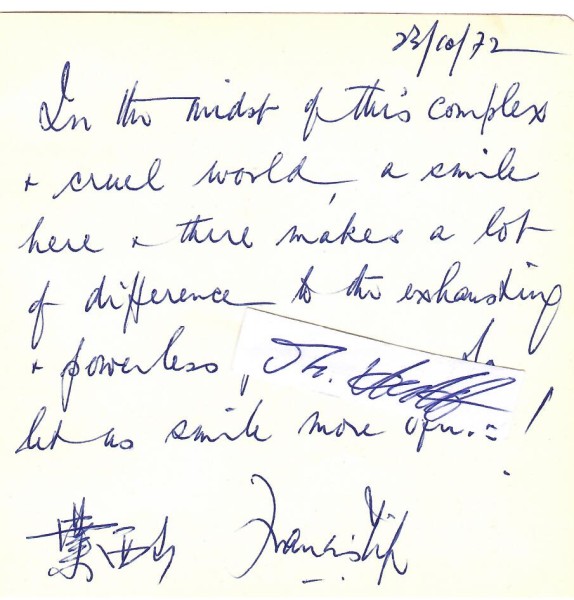 23/10/72
In the midst of this complex
& cruel world, a smile
here & there makes a lot
of difference to the exhausting
& powerless
let us smile more !
葉
Francis Yip